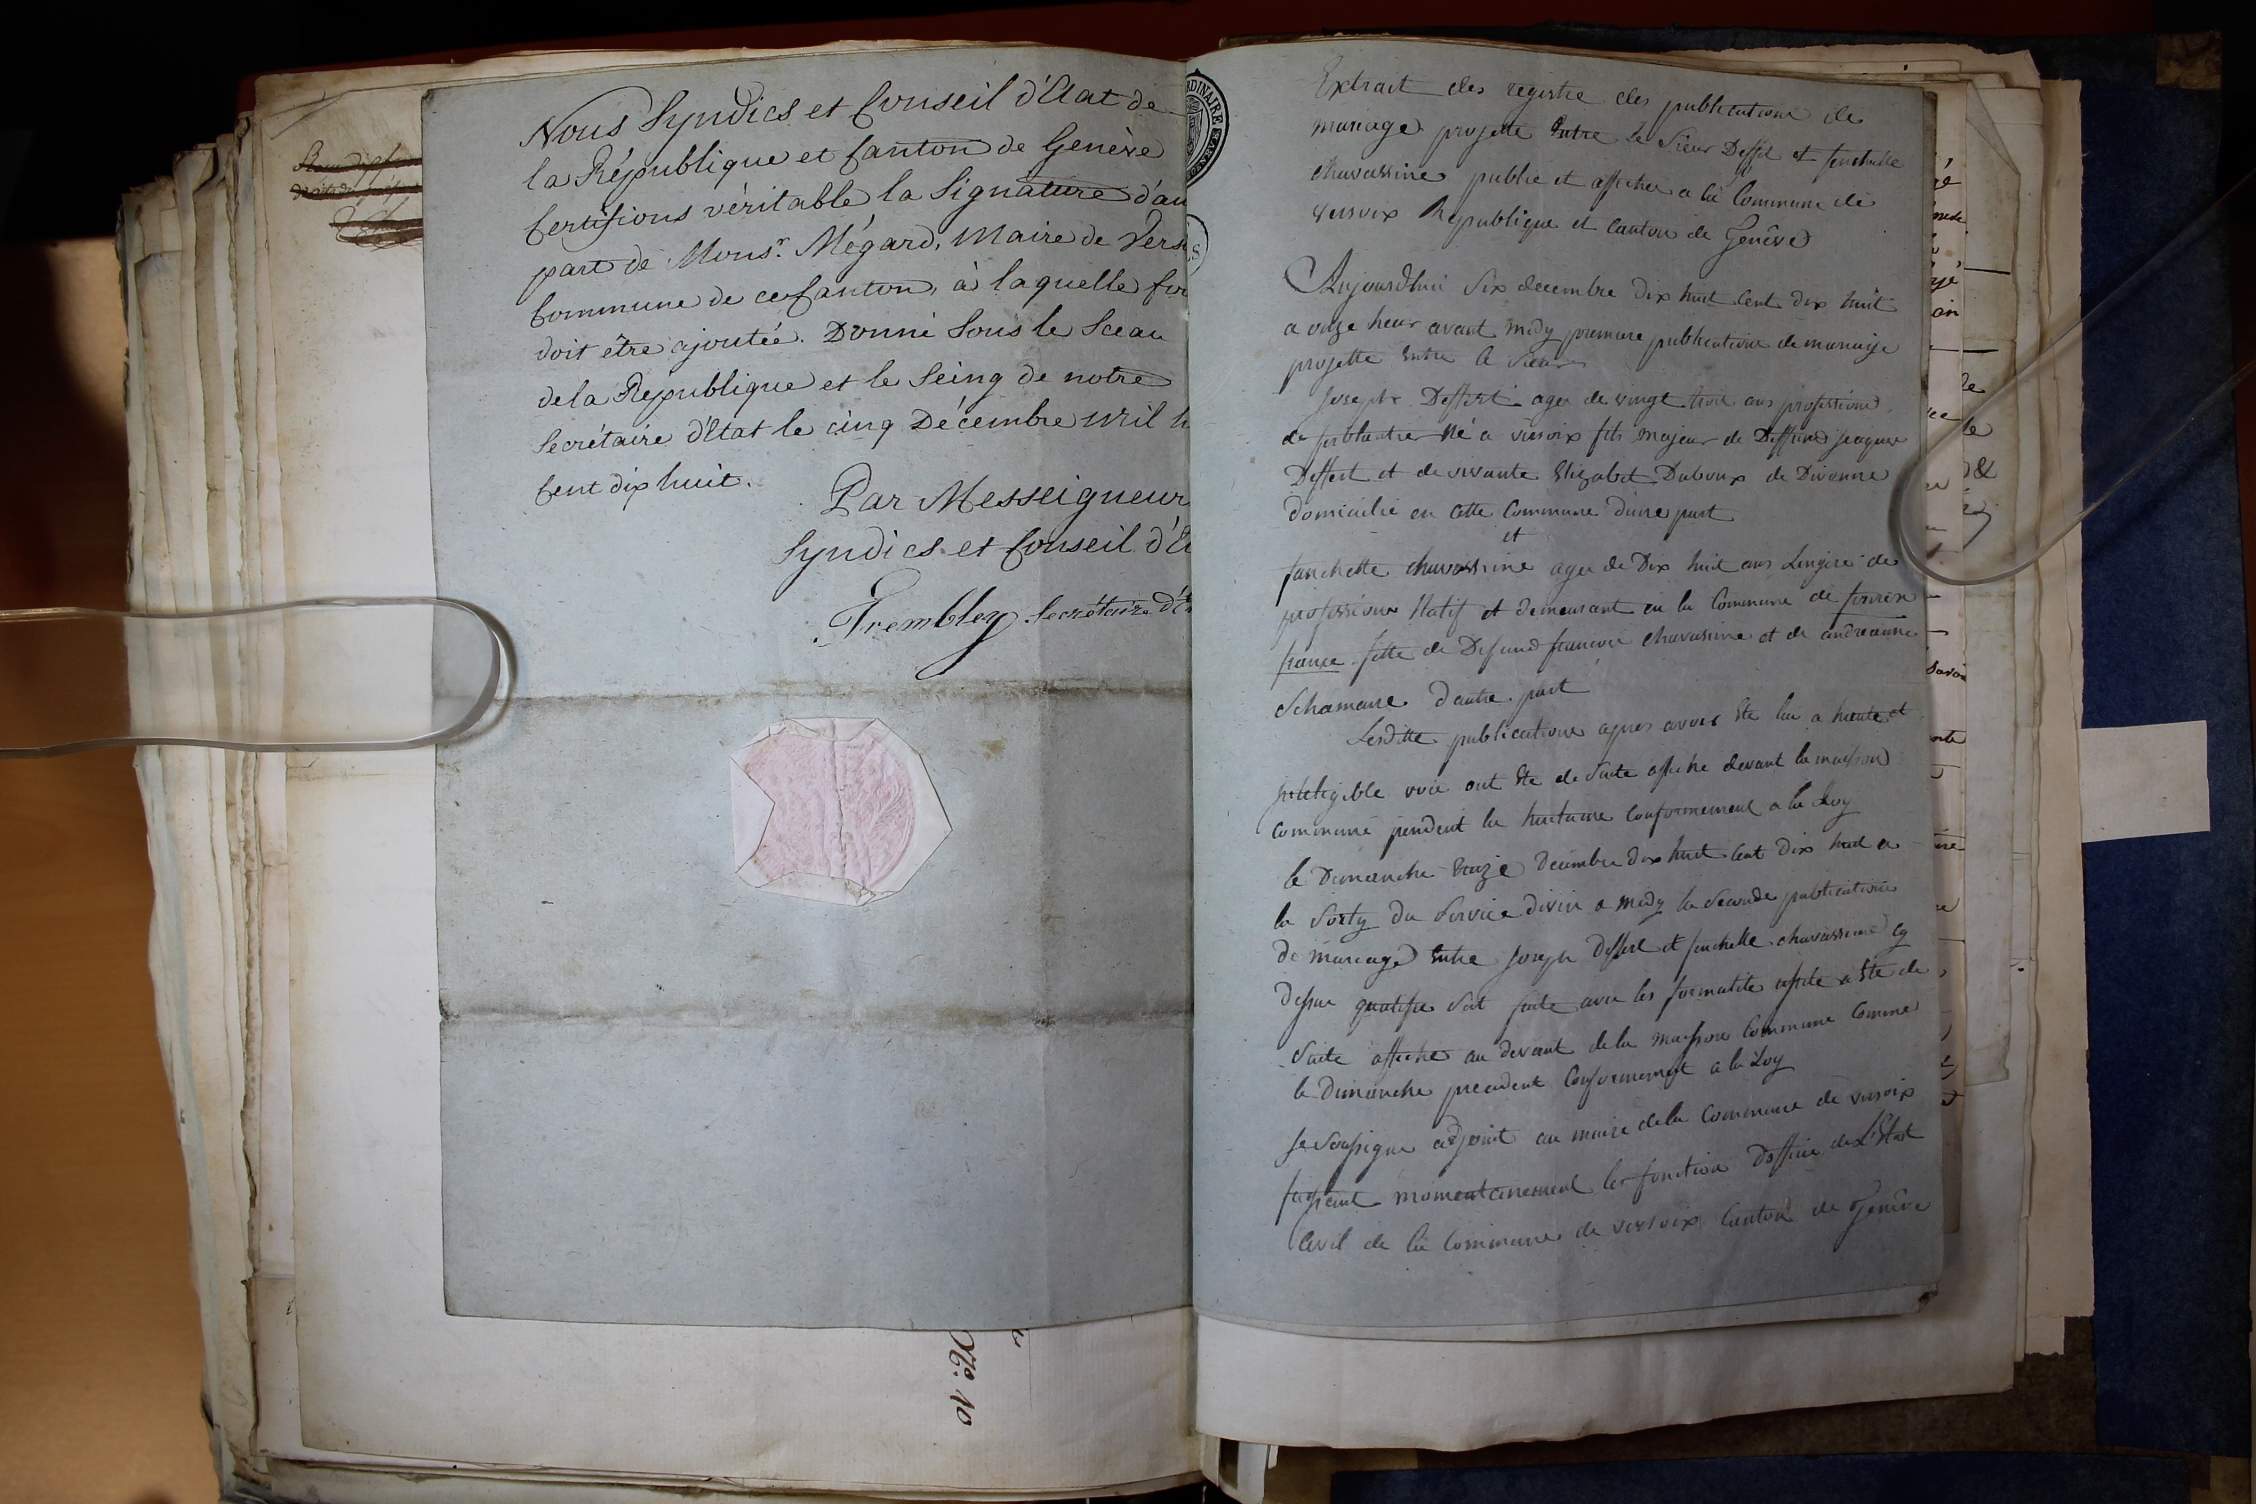 Nous Syndics et Conseil d'Etat de
la République et Canton de Genève
Certifions véritable la Signature d'au
part de Mons.r Mégard, Maire de Vers
Commune de ce Canton, à laquelle foi
doit être ajoutée. Donné sous le Sceau
de la République et le Seing de notre
Secrétaire d'Etat le cinq Décembre mil h
Cent dix huit.
Par Messeigneur
Syndics et Conseil d'Et
Trembley Secrétaire d'Et
No. 10
RDINAIRE
Extrait des registre des publications de
mariage projetté Entre le Sieur Deffert et fanchette
chavassine publié et affiché a la Commune de
versoix République et Canton de Genêve
Aujourdhui Six decembre dix huit Cent dix huit
a onze heur avant midy premiere publications de mariage
projetté Entre le Sieur
Joseph Deffert agee de vingt trois ans profession
de né a versoix fils majeur de Deffund jacques
Deffert et de vivante Elizabet Duboux de Divonne
domicilié en cette Commune dune part
et
fanchette chavassine agee de Dix huit ans Lingere de
profession Natif et demeurant en la Commune de
france fille de Defund francois chavassine et de andreanne
Schamane dautre part
Lesditte publications apres avoir Ete lue a haute et
inteligible voix ont Ete de Suite affiché devant la maison
commune pendent la huitaine Conformement a la Loy
le Dimanche treize Decembre dix huit Cent dix huit a
la Sorty du Service divin a midy la Seconde publications
de mariage Entre Joseph Deffert et fanchette chavassine cy
dessue qualifié Sest faite avec les formalité a Ete de
Suite affiché au devant de la maison Commune Comme
le Dimanche precedent Conformement a la Loy
Je Soussigne adjoint au maire de la Commune de versoix
faissant momentanement les fonction Doffice de L'Etat
Civil de la Commune de versoix Canton de Genêve